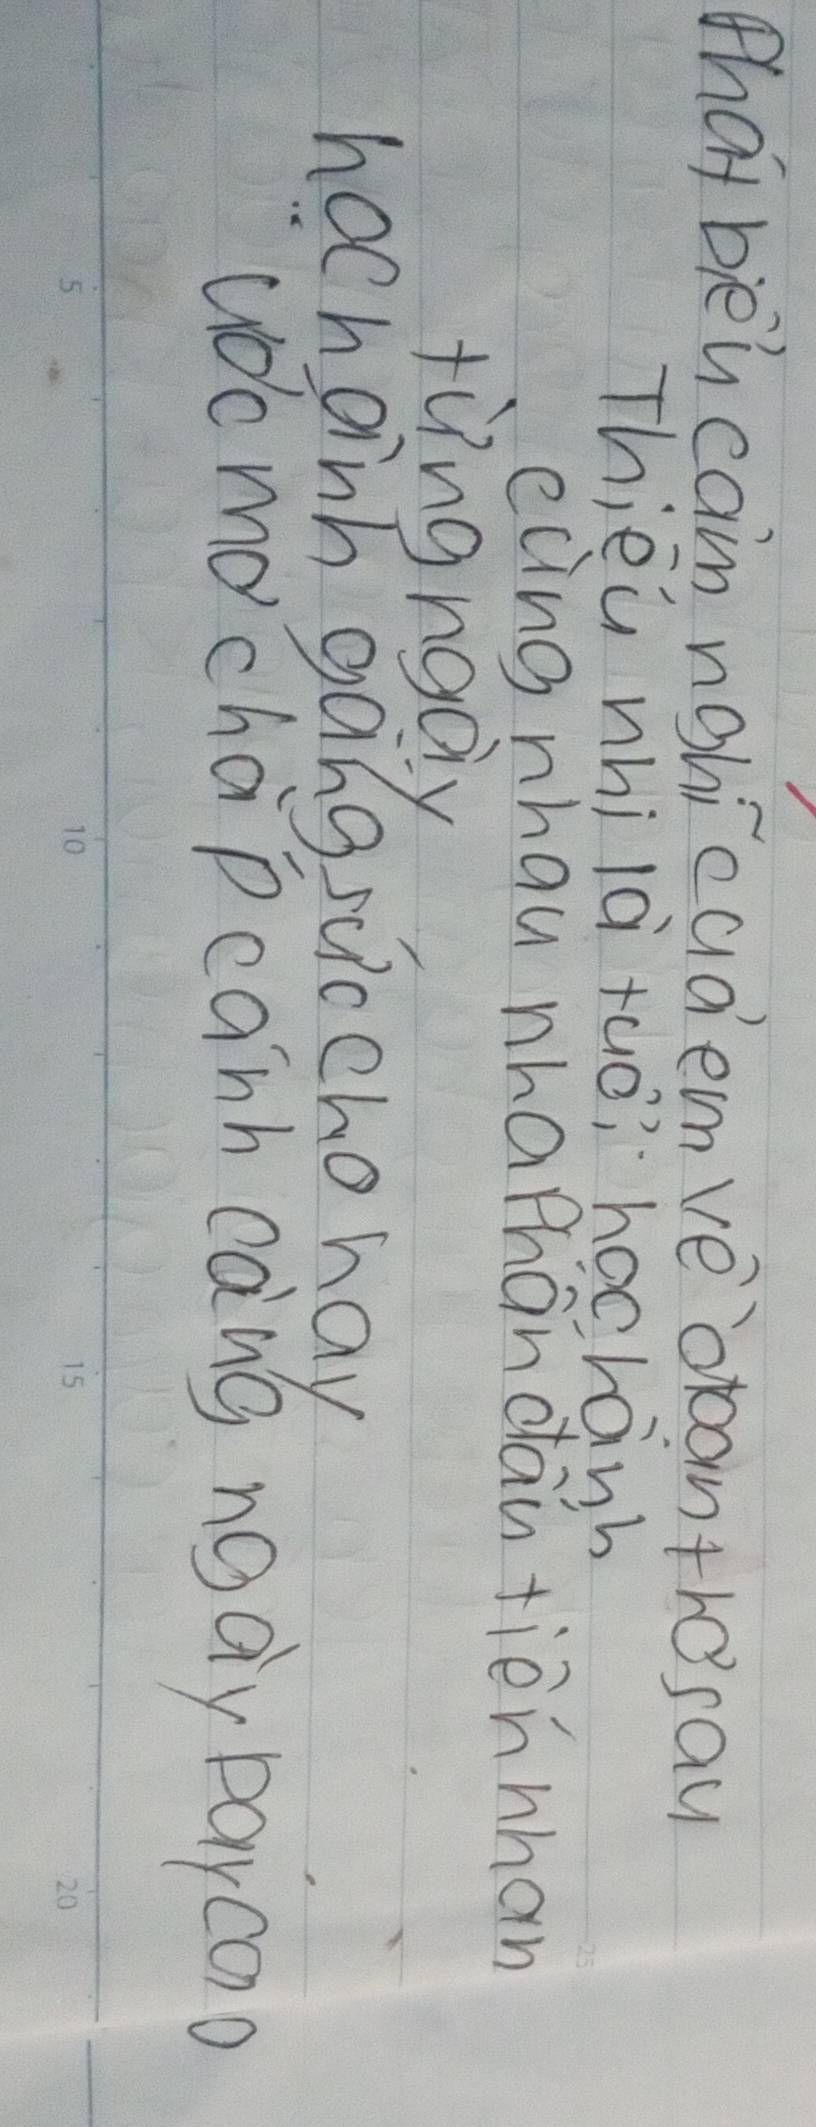 Phát biểu cảm nghĩ của em về đoạn thơ sau
Thiếu nhi là tuổi học hành
cùng nhau nha Phấn đấu tiến nhan
từng ngày
học hành gắng sức cho hay
ước mơ chắp cánh càng ngày bay cao
5 10 15 20
25